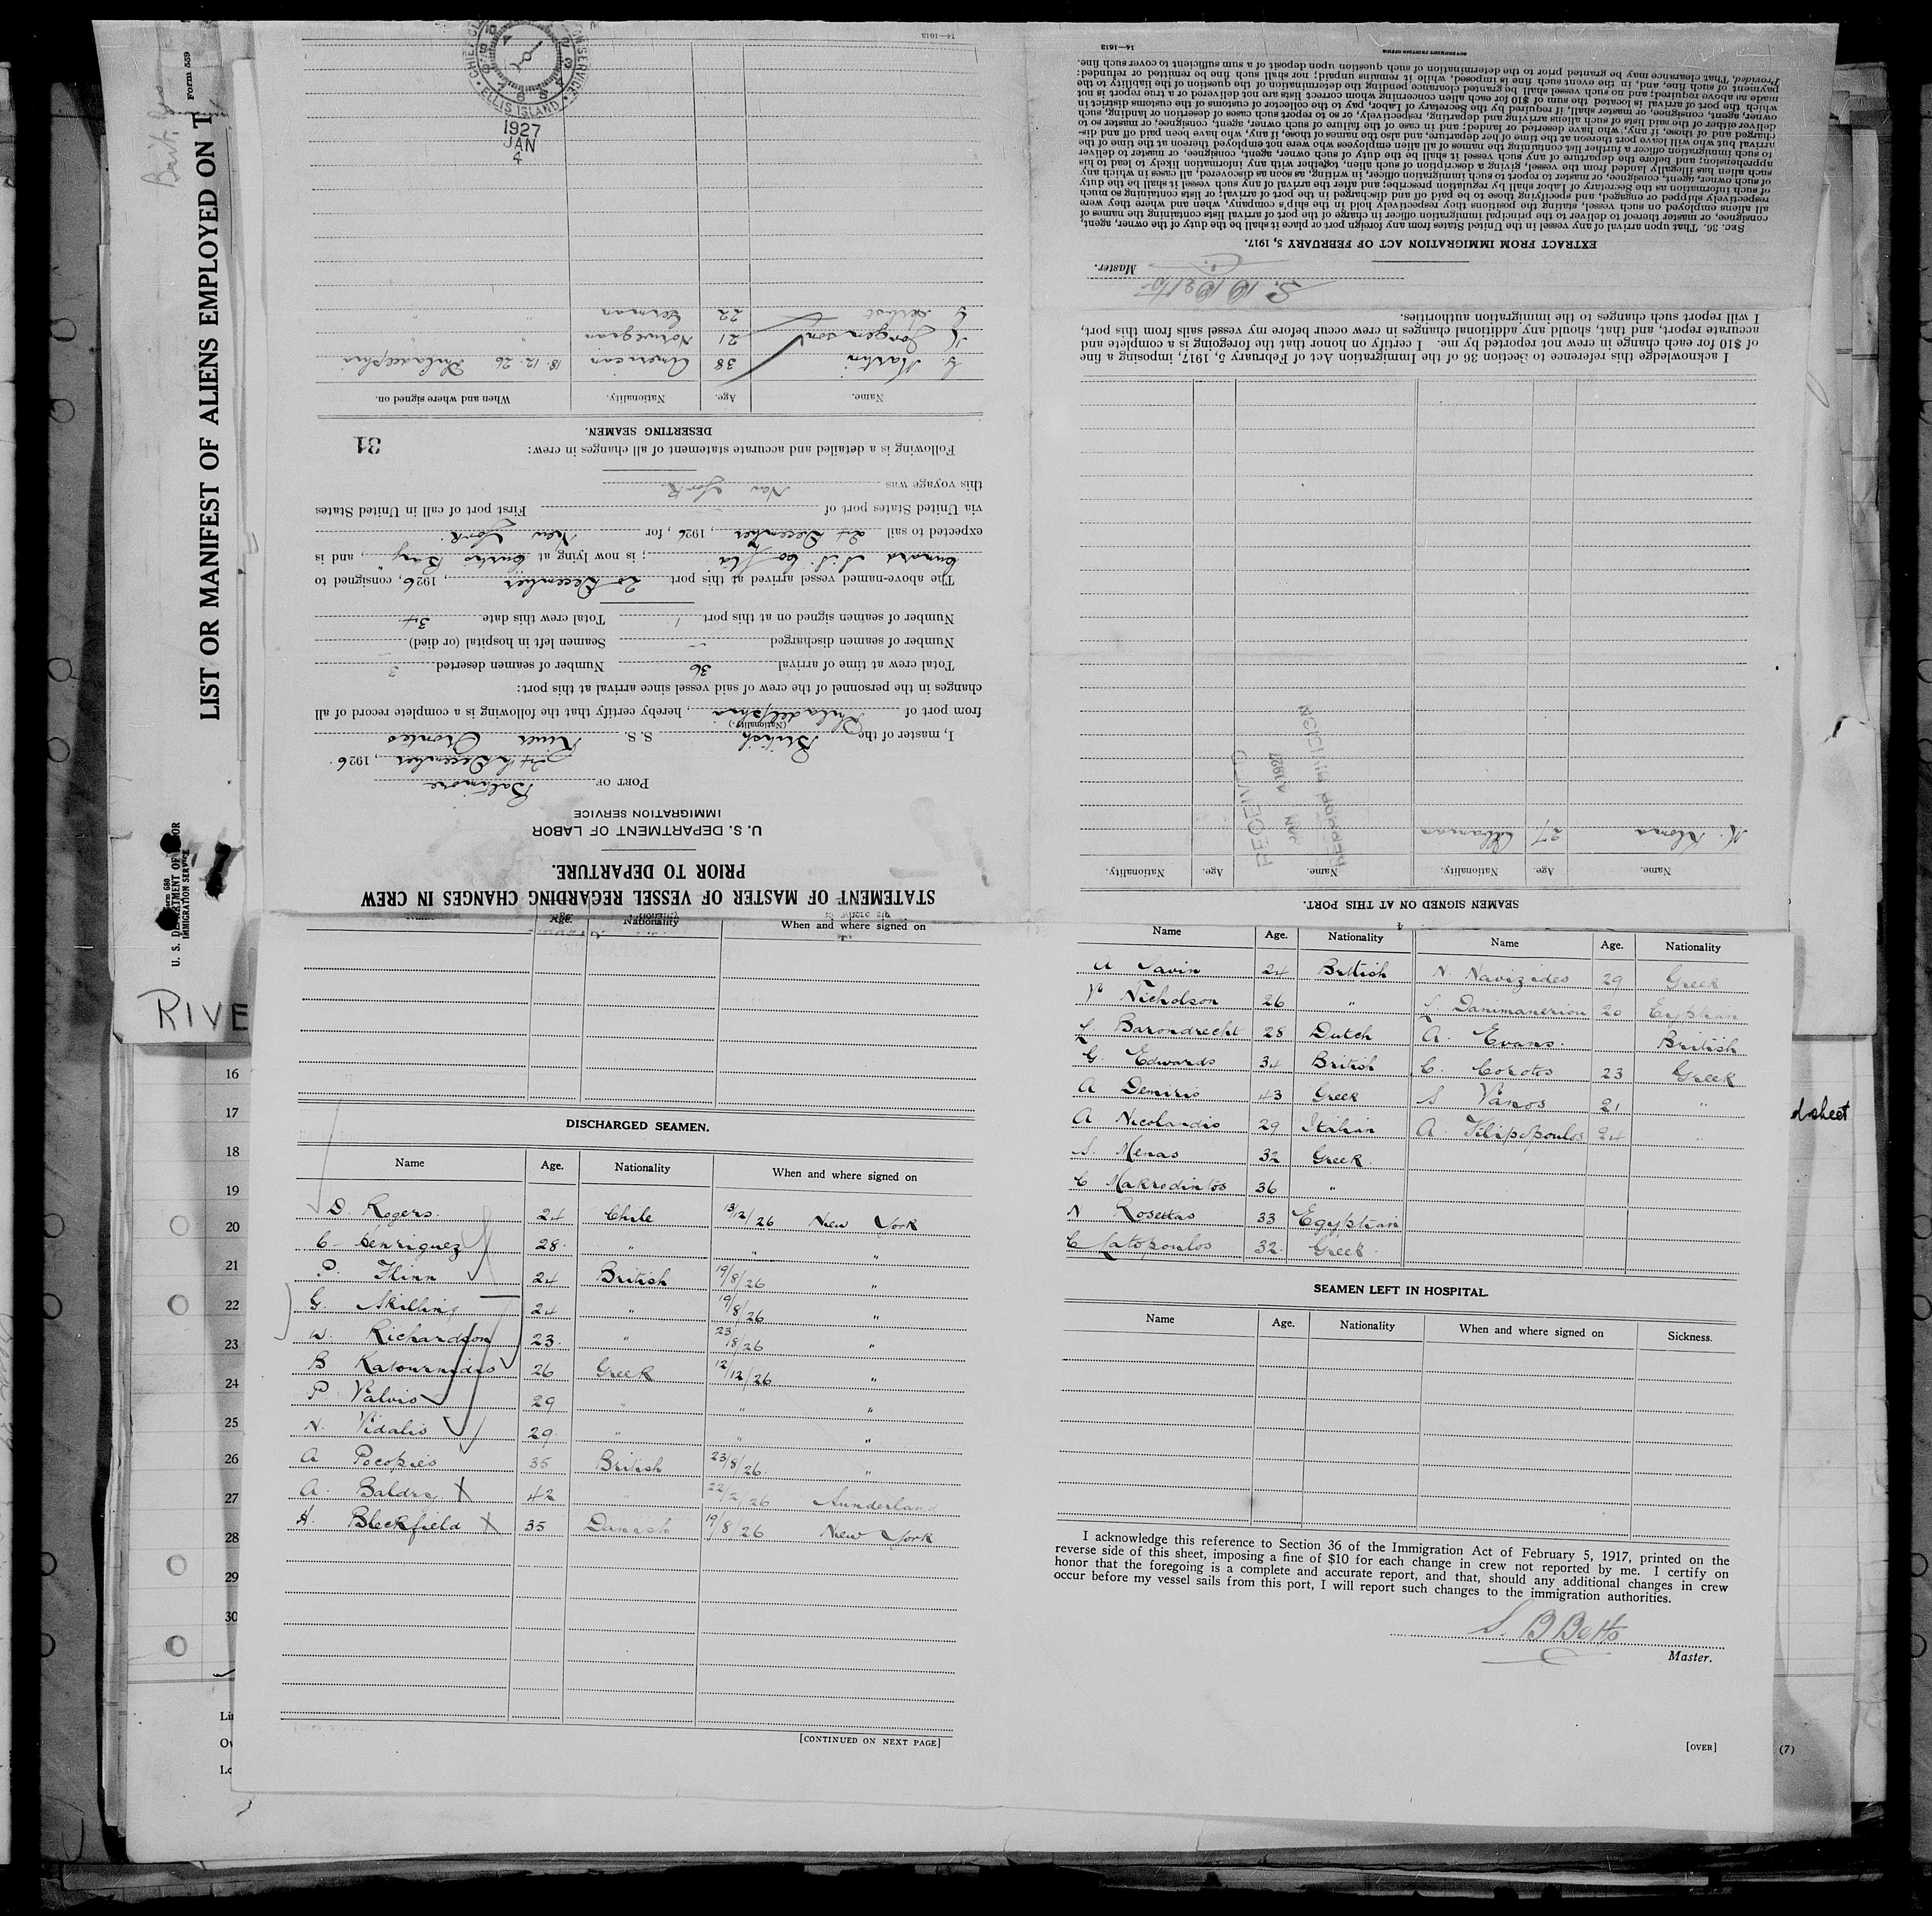 LIST OR MANIFEST OF ALIENS EMPLOYED ON T
Form 689
U. S. DEPARTMENT OF LABOR
IMMIGRATION SERVICE
RIVE
16
17
18
19
20
21
22
23
24
25
26
27
28
29
30
d sheet
(7)
STATEMENT OF MASTER OF VESSEL REGARDING CHANGES IN CREW
PRIOR TO DEPARTURE.
U. S. DEPARTMENT OF LABOR
IMMIGRATION SERVICE
PORT OF Baltimore
24th December, 1926.
I, master of the British S. S. River Orontes
(Nationality.)
from port of Philadelphia, hereby certify that the following is a complete record of all
changes in the personnel of the crew of said vessel since arrival at this port:
Total crew at time of arrival 36 Number of seamen deserted 3
Number of seamen discharged — Seamen left in hospital (or died) —
Number of seamen signed on at this port 1 Total crew this date 34
The above-named vessel arrived at this port 20 December, 1926, consigned to
Cunard S.S. Co Ltd; is now lying at Curtis Bay, and is
expected to sail 24 December, 1926, for New York.
via United States port of — First port of call in United States
this voyage was New York
Following is a detailed and accurate statement of all changes in crew:
31
DESERTING SEAMEN.
Name. Age. Nationality. When and where signed on.
Martin 38 American 18.12.26 Philadelphia
21 Norwegian " "
22 German " "
14—1613
CHIEF
ELLIS ISLAND
1927
JAN
4
SEAMEN SIGNED ON AT THIS PORT.
Name. Age. Nationality. Name. Age. Nationality.
27 Albanian
RECEIVED
JAN 4 1927
I acknowledge this reference to Section 36 of the Immigration Act of February 5, 1917, imposing a fine
of $10 for each change in crew not reported by me. I certify on honor that the foregoing is a complete and
accurate report, and that, should any additional changes in crew occur before my vessel sails from this port,
I will report such changes to the immigration authorities.
S. B Betts
Master.
EXTRACT FROM IMMIGRATION ACT OF FEBRUARY 5, 1917.
SEC. 36. That upon arrival of any vessel in the United States from any foreign port or place it shall be the duty of the owner, agent,
consignee, or master thereof to deliver to the principal immigration officer in charge of the port of arrival lists containing the names of
all aliens employed on such vessel, stating the positions they respectively hold in the ship's company, when and where they were
respectively shipped or engaged, and specifying those to be paid off and discharged in the port of arrival; or lists containing so much
of such information as the Secretary of Labor shall by regulation prescribe; and after the arrival of any such vessel it shall be the duty
of such owner, agent, consignee, or master to report to such immigration officer, in writing, as soon as discovered, all cases in which any
such alien has illegally landed from the vessel, giving a description of such alien, together with any information likely to lead to his
apprehension; and before the departure of any such vessel it shall be the duty of such owner, agent, consignee, or master to deliver
to such immigration officer a further list containing the names of all alien employees who were not employed thereon at the time of the
arrival but who will leave port thereon at the time of her departure, and also the names of those, if any, who have been paid off and dis-
charged and of those, if any, who have deserted or landed; and in case of the failure of such owner, agent, consignee, or master so to
deliver either of the said lists of such aliens arriving and departing, respectively, or so to report such cases of desertion or landing, such
owner, agent, consignee, or master shall, if required by the Secretary of Labor, pay to the collector of customs of the customs district in
which the port of arrival is located the sum of $10 for each alien concerning whom correct lists are not delivered or a true report is not
made as above required; and no such vessel shall be granted clearance pending the determination of the question of the liability to the
payment of such fine, and, in the event such fine is imposed, while it remains unpaid; nor shall such fine be remitted or refunded:
Provided, That clearance may be granted prior to the determination of such question upon deposit of a sum sufficient to cover such fine.
14—1613
GOVERNMENT PRINTING OFFICE
Age. Nationality When and where signed on
DISCHARGED SEAMEN.
Name Age. Nationality When and where signed on
D. Rogers. 24 Chile 13/12/26 New York
C Henriquez 28 " " "
P. Flinn 24 British 19/8/26 "
G. Skilling 24 " 19/8/26 "
W. Richardson 23 " 23/8/26 "
B 26 Greek 12/12/26 "
P Valvis 29 " " "
N. Vidalis 29 " " "
A Pocopies 35 British 23/8/26 "
A. Baldry X 42 " 22/2/26 Sunderland
H. Bleckfield X 35 Danish 19/8/26 New York
[CONTINUED ON NEXT PAGE]
4
Name Age. Nationality Name Age. Nationality
A 24 British N. Navizides 29 Greek
Nicholson 26 " 20
L. Barondrecht 28 Dutch A. Evans. British
G. Edwards 34 British C. Corotos 23 Greek
A Demiris 43 Greek S Vanos 21 "
A Nicolandis 29 Italian A. Filipopoulos 24 "
S. Menas 32 Greek
C Makrodimtos 36 "
N Rosettas 33 Egyptian
C Latopoulos 32 Greek
SEAMEN LEFT IN HOSPITAL.
Name Age. Nationality When and where signed on Sickness.
I acknowledge this reference to Section 36 of the Immigration Act of February 5, 1917, printed on the
reverse side of this sheet, imposing a fine of $10 for each change in crew not reported by me. I certify on
honor that the foregoing is a complete and accurate report, and that, should any additional changes in crew
occur before my vessel sails from this port, I will report such changes to the immigration authorities.
S. B Betts
Master.
[OVER]